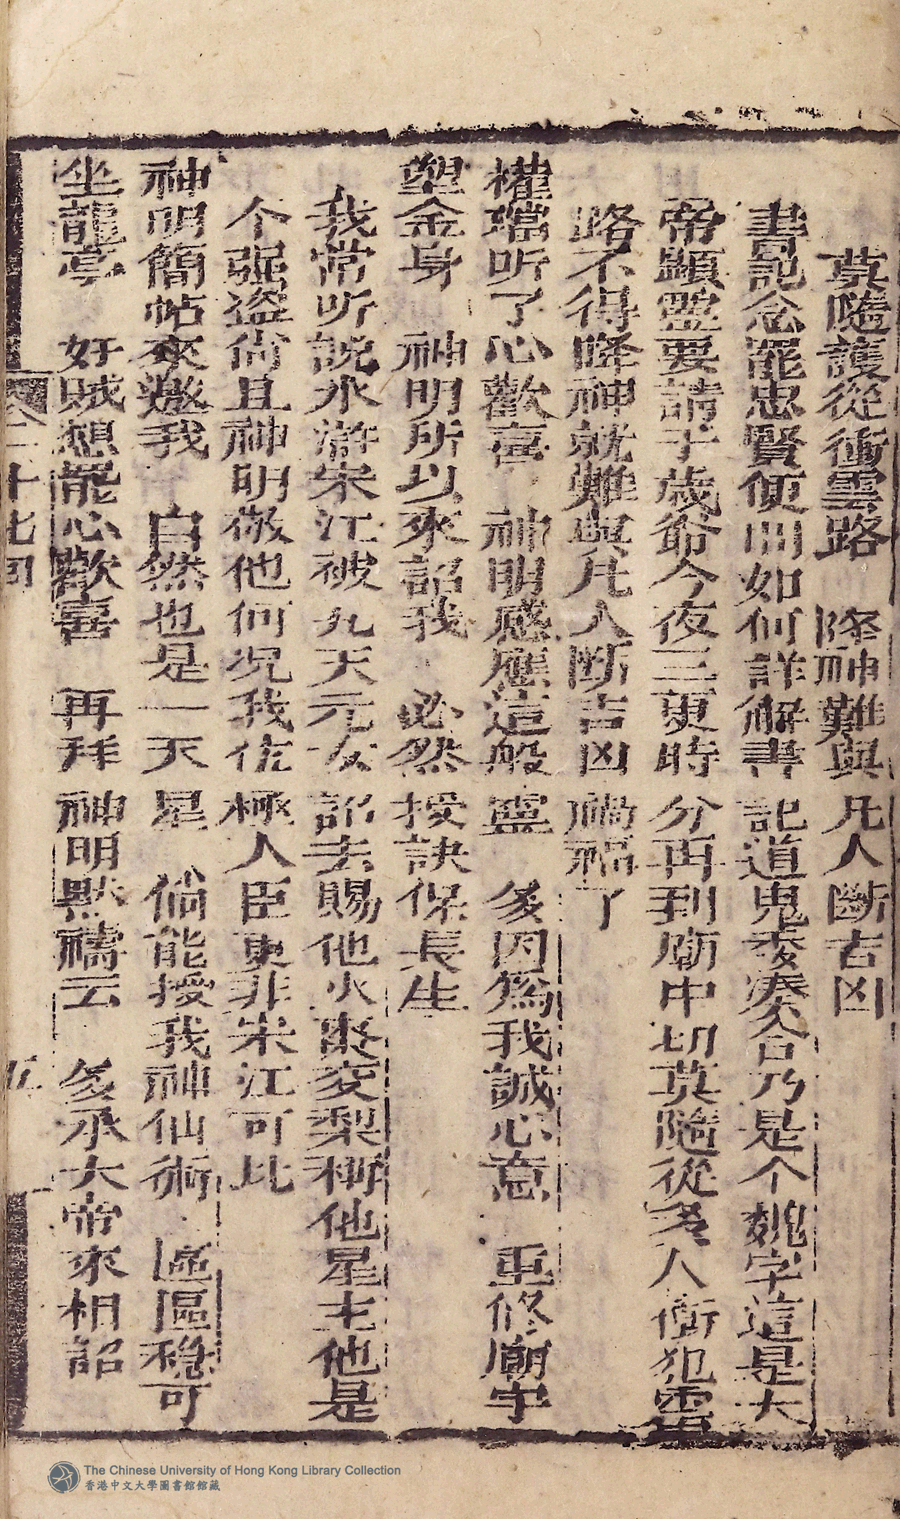 莫隨護從衝雲路　降神難與凡人斷吉凶
書記念罷忠賢便問如何詳解書記道鬼委湊合乃是个魏字這是大
帝顯靈要請千歲爺今夜三更時分再到廟中切莫隨從多人衝犯雲
路不得降神就難與凡人断吉凶禍福了
權璫听了心歡喜　神明感應這般靈　多因為我誠心意　重修廟宇
塑金身　神明所以來詔我　必然授訣保長生
我常听説水滸宋江被九天元女詔去賜他火棗交梨稱他星主他是
个强盗尚且神明敬他何况我位極人臣更非宋江可比
神明簡帖來邀我　自然也是一天星　倘能授我神仙術　區區穏可
坐龍亭　好賊想罷心歡喜　再拜神明黙禱云　多承大帝來相詔
二十七囘
五
The Chinese University of Hong Kong Library Collection
香港中文大學圖書館館藏